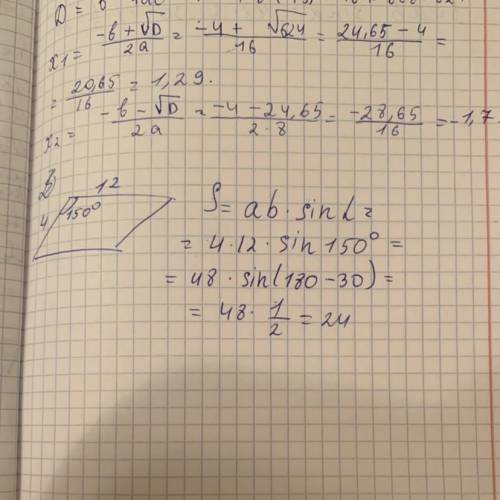 x₁= (-b + √D)/2a = (-4 + √624)/16 = (24,65 - 4)/16 =
= 20,65/16 = 1,29.
x₂= (-b - √D)/2a = (-4 - 24,65)/(2·8) = -28,65/16 = -1,7
12
4
150°
S = ab · sin L =
= 4·12 · sin 150° =
= 48 · sin(180-30) =
= 48 · 1/2 = 24